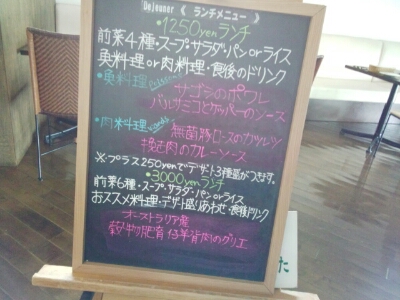 Dejeuner 《 ランチメニュー 》
•1250yenランチ
前菜4種・スープ・サラダ・パンorライス
魚料理or肉料理・食後のドリンク
•魚料理
サゴシのポワレ
バルサミコとケッパーのソース
•肉料理
無菌豚ロースのカツレツ
挽き肉のカレーソース
※プラス250yenでデザート3種盛がつきます。
•3000yenランチ
前菜6種・スープ・サラダ・パンorライス
おススメ料理・デザート盛りあわせ・食後ドリンク
オーストラリア産
穀物肥育仔羊背肉のグリエ
た